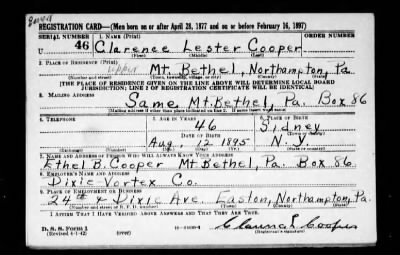 REGISTRATION CARD—(Men born on or after April 28, 1877 and on or before February 16, 1897)
SERIAL NUMBER 1. NAME (Print) ORDER NUMBER
U 46 Clarence Lester Cooper
(First) (Middle) (Last)
2. PLACE OF RESIDENCE (Print)
Mt. Bethel, Northampton, Pa.
(Number and street) (Town, township, village, or city) (County) (State)
[THE PLACE OF RESIDENCE GIVEN ON THE LINE ABOVE WILL DETERMINE LOCAL BOARD
JURISDICTION; LINE 2 OF REGISTRATION CERTIFICATE WILL BE IDENTICAL]
3. MAILING ADDRESS
Same Mt. Bethel, Pa. Box 86
[Mailing address if other than place indicated on line 2. If same insert word same]
4. TELEPHONE 5. AGE IN YEARS 6. PLACE OF BIRTH
46 Sidney
DATE OF BIRTH
Aug. 12 1895 N.Y.
(Exchange) (Number) (Mo.) (Day) (Yr.) (State or country)
7. NAME AND ADDRESS OF PERSON WHO WILL ALWAYS KNOW YOUR ADDRESS
Ethel B. Cooper Mt Bethel, Pa. Box 86
8. EMPLOYER'S NAME AND ADDRESS
Dixie Vortex Co.
9. PLACE OF EMPLOYMENT OR BUSINESS
24th & Dixie Ave. Easton, Northampton, Pa.
(Number and street or R. F. D. number) (Town) (County) (State)
I AFFIRM THAT I HAVE VERIFIED ABOVE ANSWERS AND THAT THEY ARE TRUE.
D. S. S. Form 1
(Revised 4-1-42) (over) Clarence L Cooper
(Registrant's signature)